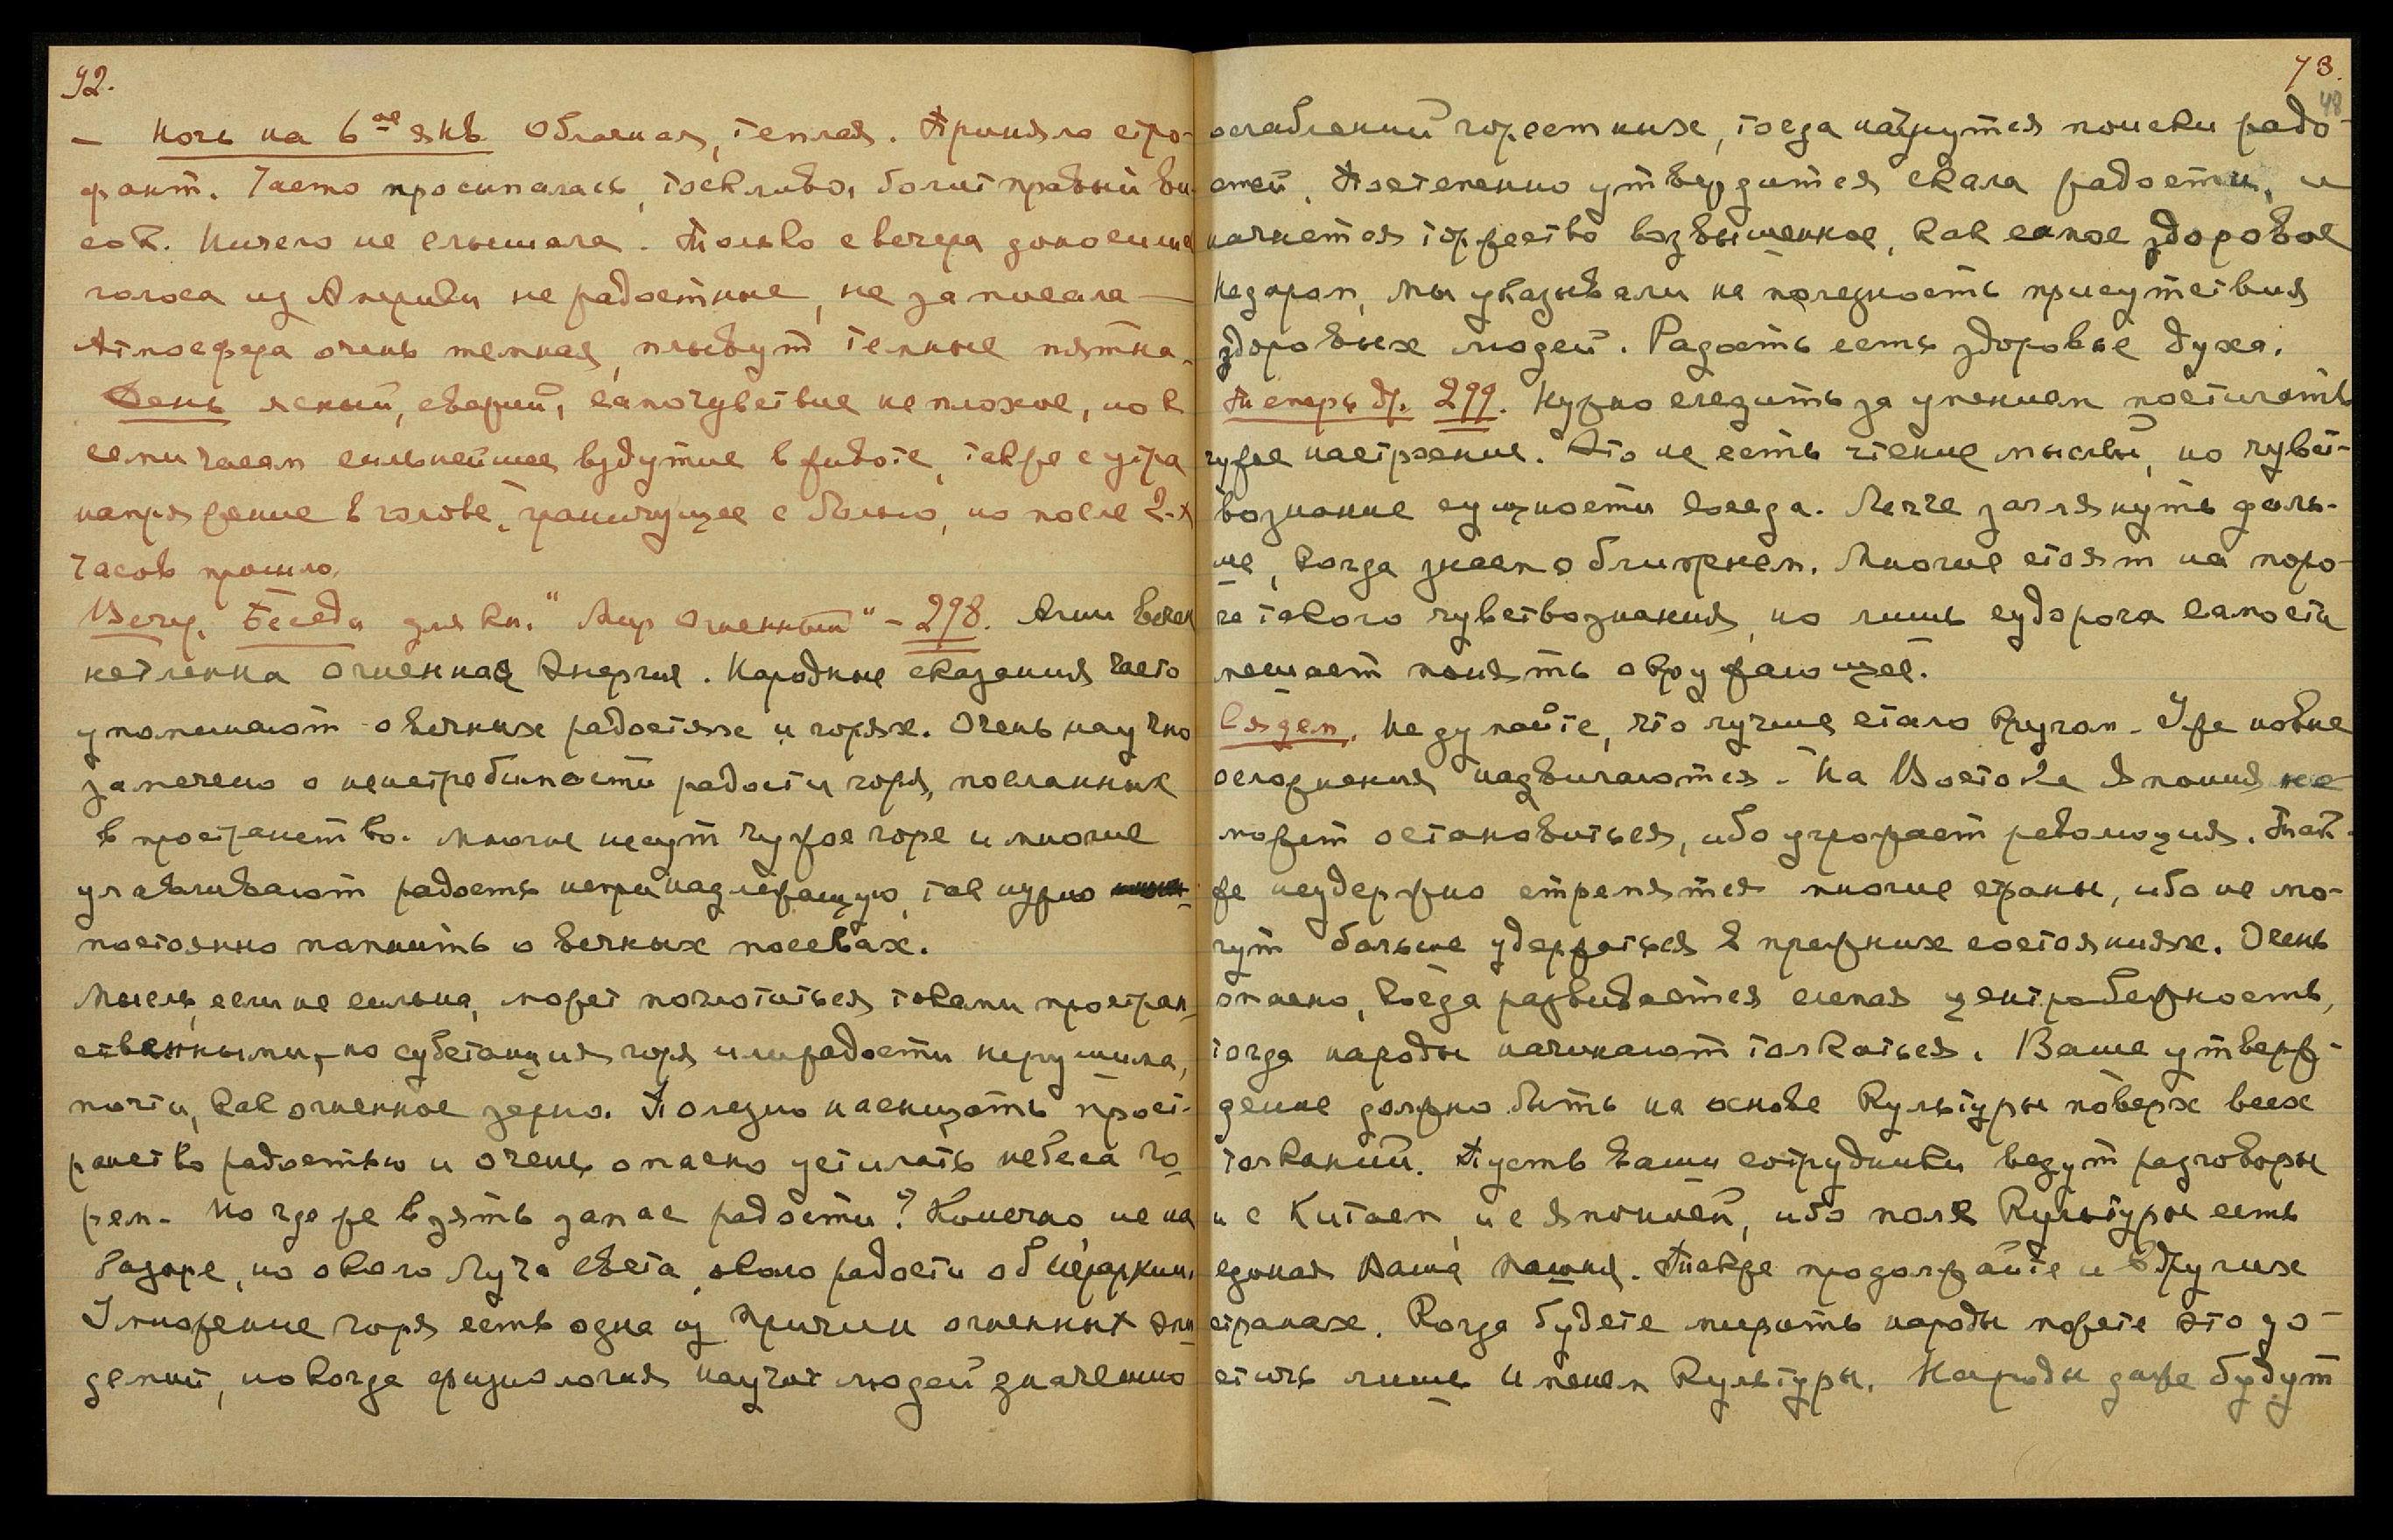 92.
– Ночь на 6ое янв. Облачная, теплая. Приняла стро-
фант. Часто просыпалась, тоскливо, болит правый ви-
сок. Ничего не слышала. Только с вечера доносились
голоса из Америки не радостные, не записала —
Атмосфера очень темная, плывут темные пятна.
День ясный, свежий, самочувствие не плохое, но к
семи часам сильнейшее вздутие в животе, также с утра
напряжение в голове, граничущее с болью, но после 2-х
часов прошло.
Вечер. Беседа для кн. "Мир Огненный" – 298. Агни вечен
нетленна огненная Энергия. Народные сказания часто
упоминают о вечных радостях и горях. Очень научно
замечено о неистребимости радости и горя, посланных
в пространство. Многие несут чужое горе и многие
улавливают радость непринадлежащую, так нужно
постоянно помнить о вечных посевах.
Мысль, если не сильна, может поглотиться токами простран-
ственными, но субстанция горя или радости нерушима,
почти, как огненное зерно. Полезно насыщать прост-
ранство радостью и очень опасно устилать небеса го-
рем. Но где же взять запас радости? Конечно, не на
базаре, но около Луча Света, около радости об Иерархии.
Умножение горя есть одна из причин огненных эпи
демий, но когда физиология научит людей значению
73.
48
ослаблений горестных, тогда начнутся поиски радо-
стей. Постепенно утвердится скала радости, и
начнется торжество возвышенное, как самое здоровое
Недаром, мы указывали на полезность присутствия
здоровых людей. Радость есть здоровье духа.
Теперь др. 299. Нужно следить за умением постигать
чужое настроение. Это не есть чтение мыслей, но чувст-
вознание сущности соседа. Легче заглянуть даль-
ше, когда знаем о ближнем. Многие стоят на поро-
ге такого чувствознания, но лишь судорога самости
мешает понять окружающее.
Владем. Не думайте, что лучше стало кругом. Уже новые
осложнения надвигаются. На Востоке Япония не
может остановиться, ибо угрожает революция. Так-
же неудержно стремятся многие страны, ибо не мо-
гут больше удержаться в прежних состояниях. Очень
опасно, когда развивается слепая центробежность,
тогда народы начинают толкаться. Ваше утверж-
дение должно быть на основе Культуры поверх всех
толканий. Пусть ваши сотрудники ведут разговоры
и с Китаем, и с Японией, ибо поле Культуры есть
единая Ваша пашня. Также продолжайте и в других
странах. Когда будете мирить народы можете это до-
стичь лишь именем Культуры. Народы даже будут